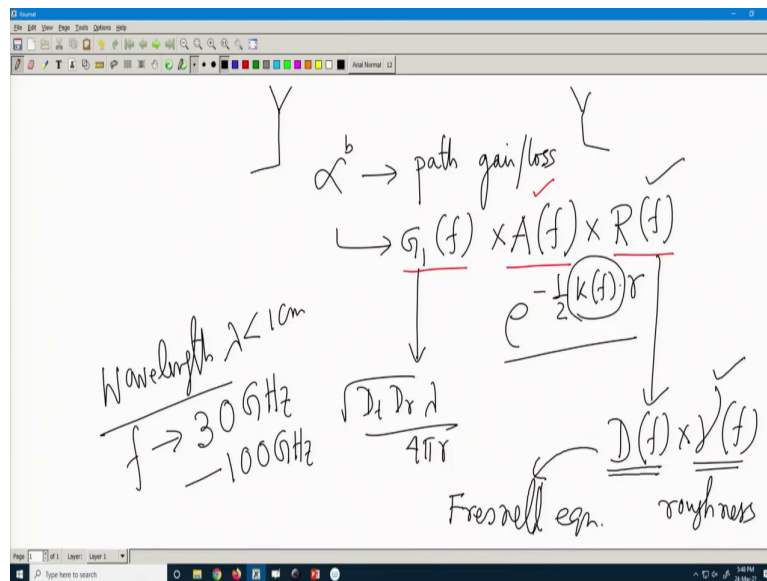 Xournal
File Edit View Page Tools Options Help
Arial Normal 12
α^b → path gain/loss
↳ G₁(f) × A(f) × R(f)
e^{-1/2 k(f)·r}
Wavelength λ < 1cm
f → 30 GHz
— 100 GHz
√(D_t D_r) λ
4πr
D(f) × γ(f)
Fresnell eqn. roughness
Page 1 of 1 Layer: Layer 1
Type here to search
5:48 PM
24-Mar-21